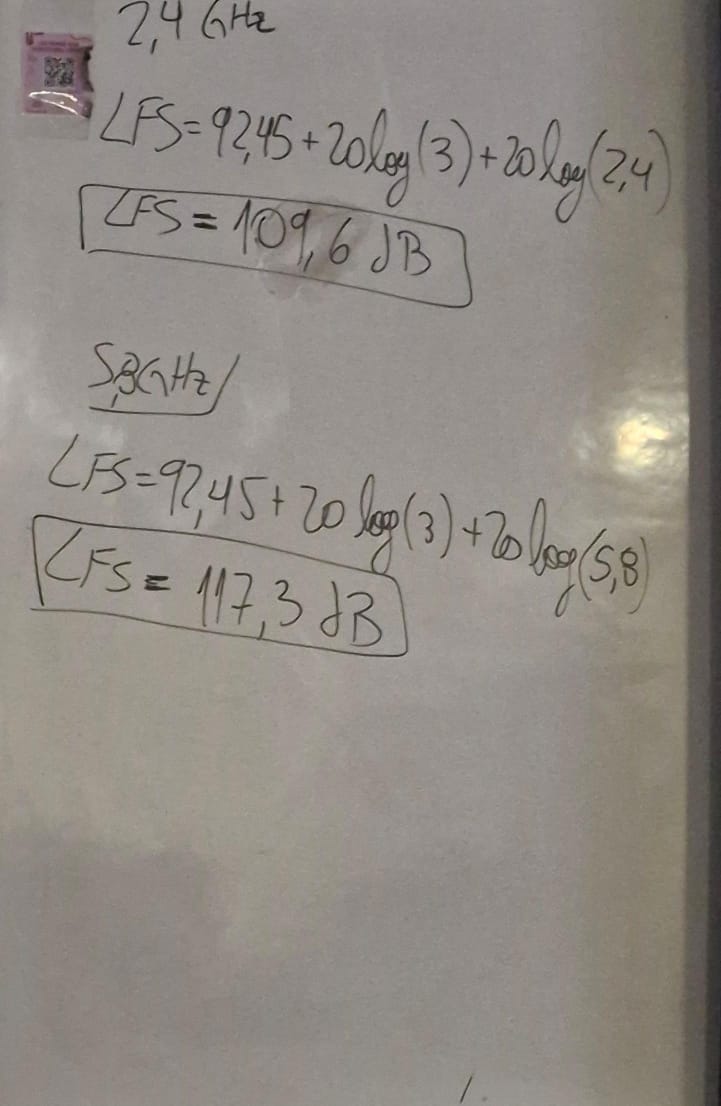 2,4 GHz
LFS=92,45+20log(3)+20log(2,4)
LFS = 109,6 dB
5,8GHz
LFS=92,45+20log(3)+20log(5,8)
LFS = 117,3 dB